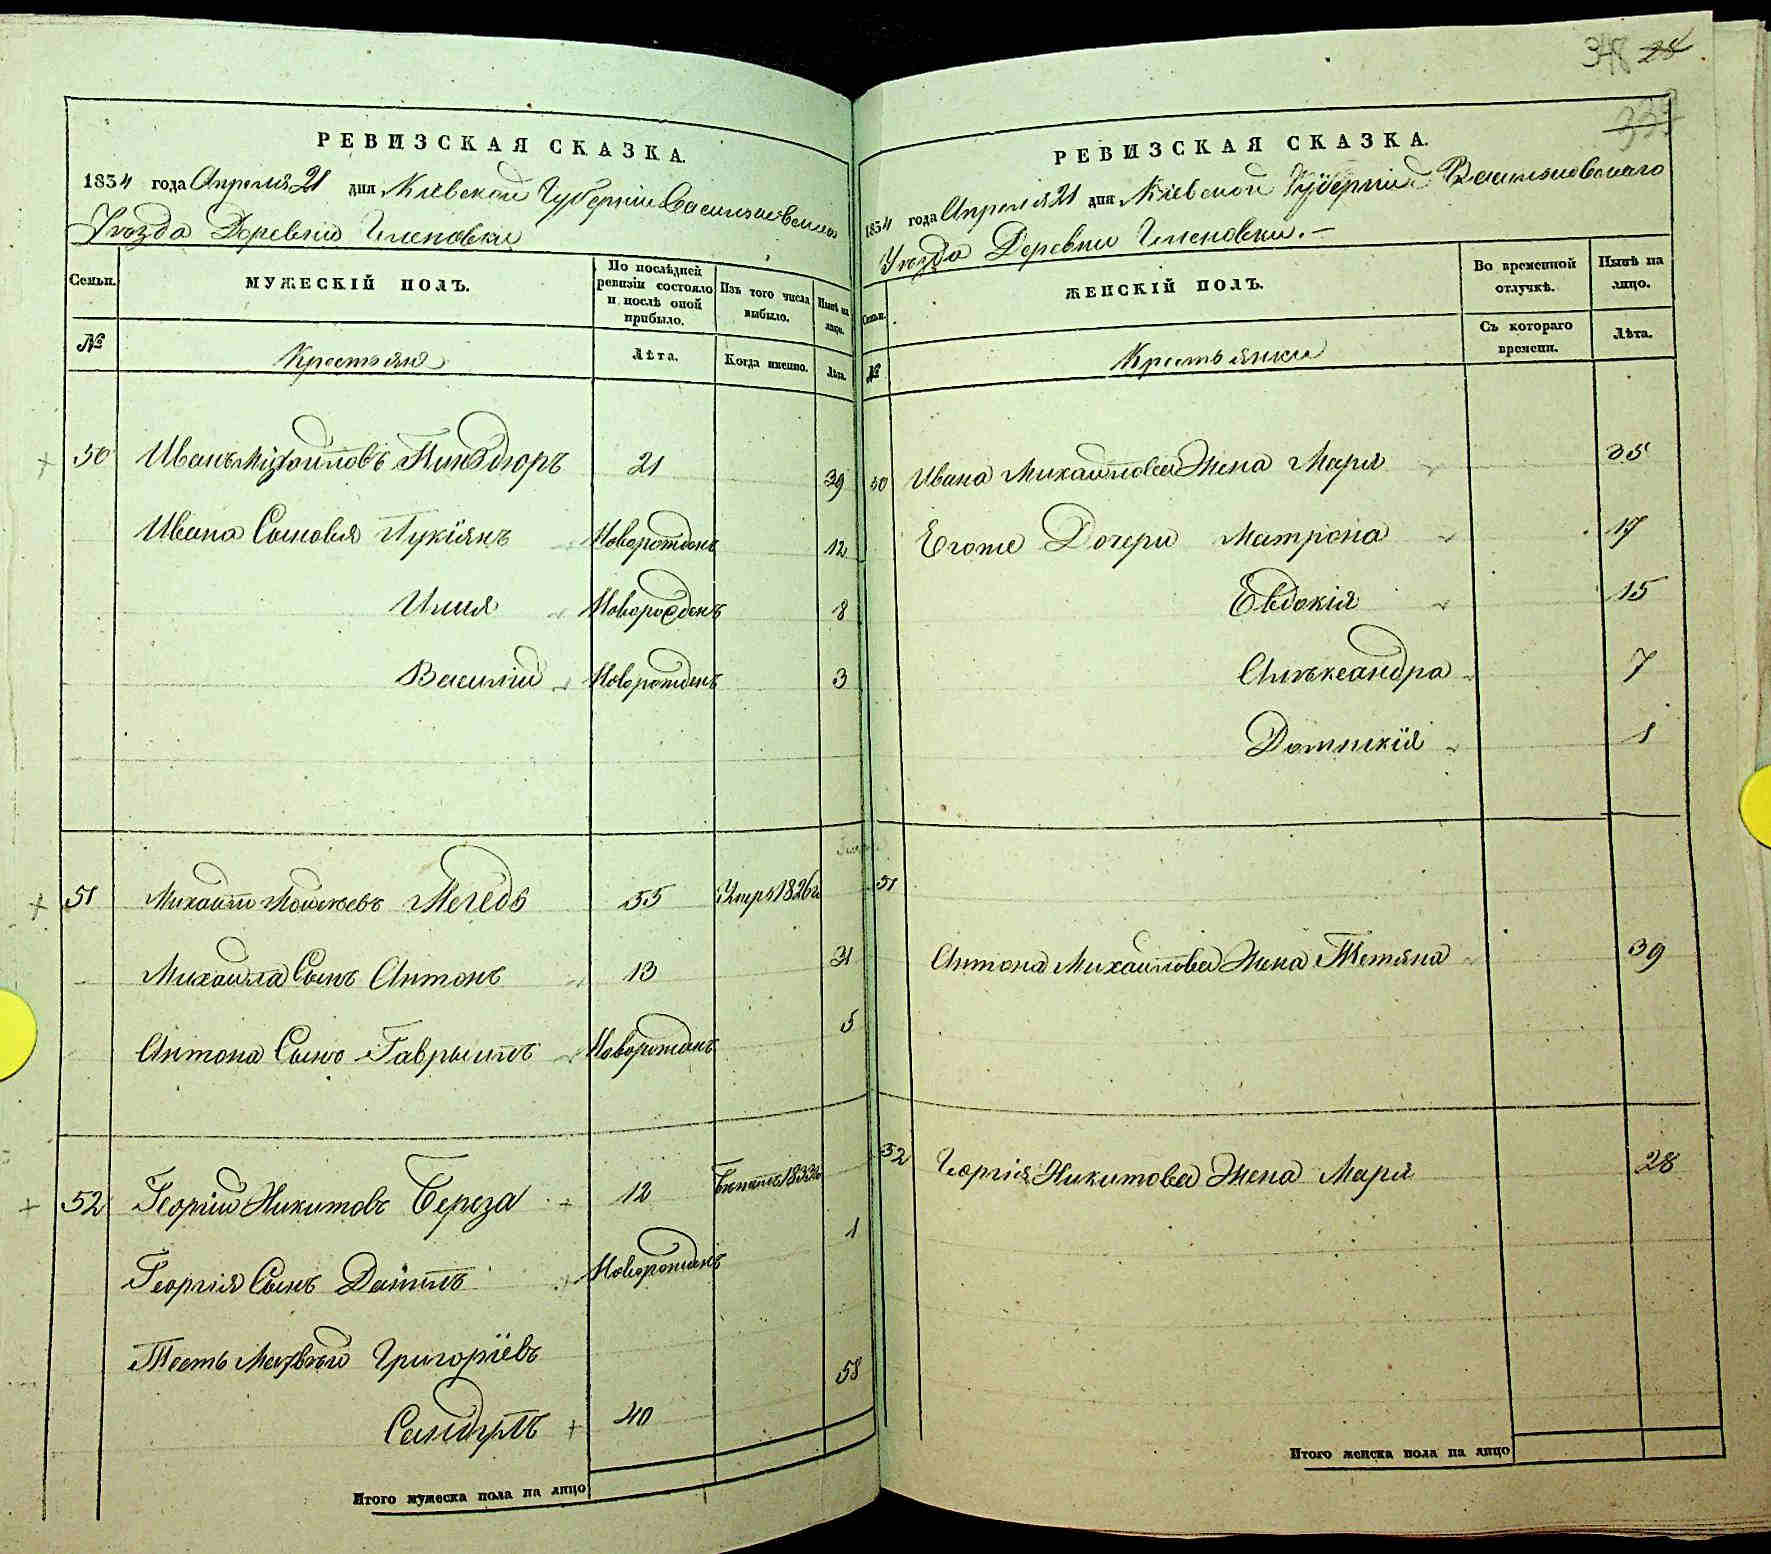 348 28
339
РЕВИЗСКАЯ СКАЗКА.
1834 года Апреля 21 дня Кіевской Губерніи Васильковскаго
Уѣзда Деревни
Семьи.
МУЖЕСКІЙ ПОЛЪ.
По послѣдней ревизіи состояло и послѣ оной прибыло.
Изъ того числа выбыло.
Нынѣ на лицо.
№
Крестьяне
Лѣта.
Когда именно.
Лѣта.
50 Иванъ Михайловъ 21 39
Ивана Сыновья Лукіянъ Новорожденъ 12
Илия Новорожденъ 8
Василій Новорожденъ 3
51 Михаилъ Моисеевъ Мегедь 55 Умръ 1826го
Михаила Сынъ Антонъ 13 31
Антона Сынъ Гаврыилъ Новорожденъ 5
52 Георгій Никитовъ Береза 12 1833
Георгія Сынъ Даніилъ Новорожденъ 1
Тесть Матвѣй Григоріевъ
40 58
Итого мужеска пола на лицо
РЕВИЗСКАЯ СКАЗКА.
1834 года Апреля 21 дня Кіевской Губерніи Васильковскаго
Уѣзда Деревни
Семьи.
ЖЕНСКІЙ ПОЛЪ.
Во временной отлучкѣ.
Нынѣ на лицо.
№
Крестьянки
Съ котораго времени.
Лѣта.
50 Ивана Михайлова Жена Маря 35
Егоже Дочери Матрона 17
Евдокія 15
Алѣксандра 7
Домникія 1
51
Антона Михайлова Жена Тетяна 39
52 Георгія Никитова Жена Маря 28
Итого женска пола на лицо